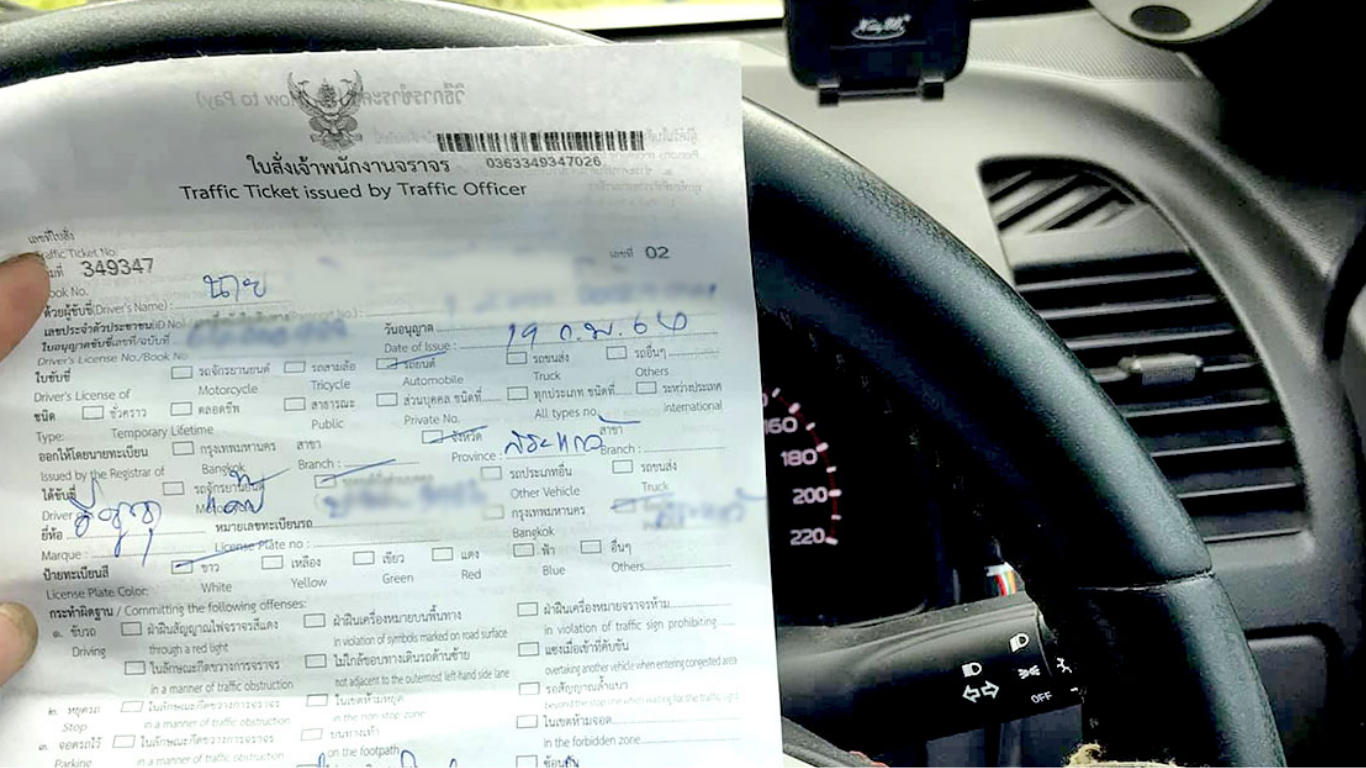 วิธีการชำระ (How to Pay)
0363349347026
ใบสั่งเจ้าพนักงานจราจร
Traffic Ticket issued by Traffic Officer
เลขที่ใบสั่ง
Traffic Ticket No.
เล่มที่ 349347 เลขที่ 02
Book No.
ด้วยผู้ขับขี่(Driver's Name) : นาย
เลขประจำตัวประชาชน(ID No)
ใบอนุญาตขับขี่เลขที่/ฉบับที่ วันอนุญาต 19 ก.พ. 64
Driver's License No./Book No. Date of Issue :
ใบขับขี่ รถจักรยานยนต์ รถสามล้อ รถยนต์ รถขนส่ง รถอื่นๆ
Driver's License of Motorcycle Tricycle Automobile Truck Others
ชนิด ชั่วคราว ตลอดชีพ สาธารณะ ส่วนบุคคล ชนิดที่ ทุกประเภท ชนิดที่ ระหว่างประเทศ
Type: Temporary Lifetime Public Private No. All types no. International
ออกให้โดยนายทะเบียน กรุงเทพมหานคร สาขา จังหวัด สระแก้ว สาขา
Issued by the Registrar of Bangkok Branch : Province : Branch :
ได้ขับขี่ รถจักรยานยนต์ รถประเภทอื่น รถขนส่ง
Driver Other Vehicle Truck
ยี่ห้อ อีซูซุ หมายเลขทะเบียนรถ กรุงเทพมหานคร
Marque : License Plate no : Bangkok
ป้ายทะเบียนสี ขาว เหลือง เขียว แดง ฟ้า อื่นๆ
License Plate Color: White Yellow Green Red Blue Others
กระทำผิดฐาน / Committing the following offenses:
๑. ขับรถ ฝ่าฝืนสัญญาณไฟจราจรสีแดง ฝ่าฝืนเครื่องหมายบนพื้นทาง ฝ่าฝืนเครื่องหมายจราจรห้าม
Driving through a red light in violation of symbols marked on road surface in violation of traffic sign prohibiting
ในลักษณะกีดขวางการจราจร ไม่ใกล้ขอบทางเดินรถด้านซ้าย แซงเมื่อเข้าที่คับขัน
in a manner of traffic obstruction not adjacent to the outermost left-hand side lane overtaking another vehicle when entering congested area
รถสัญญาณล้ำแนว
beyond the stop line when waiting for the traffic light
๒. หยุดรถ ในลักษณะกีดขวางการจราจร ในเขตห้ามหยุด ในเขตห้ามจอด
Stop in a manner of traffic obstruction in the non-stop zone in the forbidden zone
๓. จอดรถไว้ ในลักษณะกีดขวางการจราจร บนทางเท้า ซ้อนคัน
Parking in a manner of traffic obstruction on the footpath
160
180
200
220
OFF